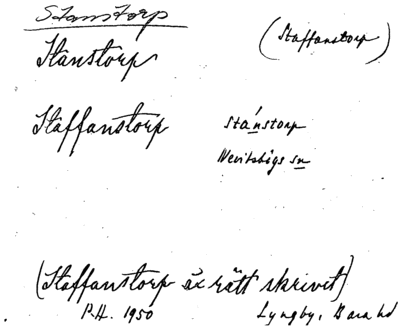 Stanstorp
Stanstorp (Staffanstorp)
Staffanstorp stánstorp
Nevitshögs sn
(Staffanstorp är rätt skrivet)
P.H. 1950 Lyngby, Bara hd